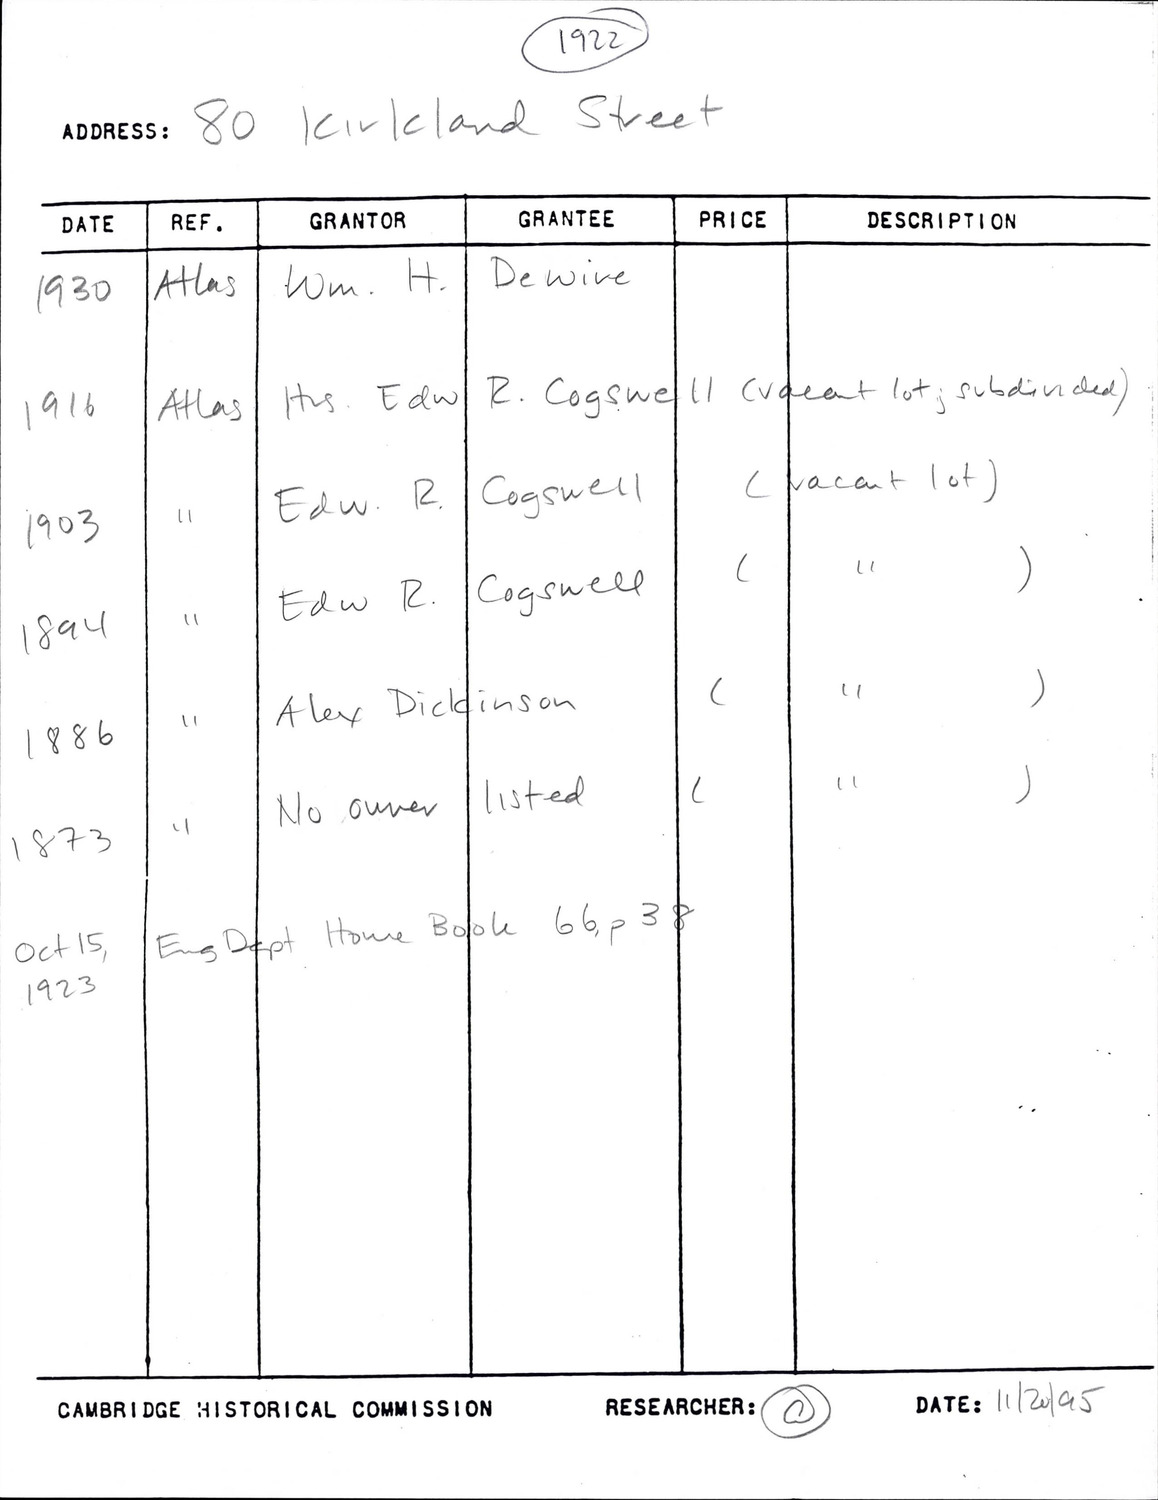 1922
ADDRESS: 80 Kirkland Street
DATE REF. GRANTOR GRANTEE PRICE DESCRIPTION
1930 Atlas Wm. H. Dewire
1916 Atlas Hrs. Edw R. Cogswell (vacant lot; subdivided)
1903 " Edw. R. Cogswell (vacant lot)
1894 " Edw R. Cogswell ( " )
1886 " Alex Dickinson ( " )
1873 " No owner listed ( " )
Oct 15, Eng Dept House Book 66, p 38
1923
CAMBRIDGE HISTORICAL COMMISSION RESEARCHER: DATE: 11/20/95